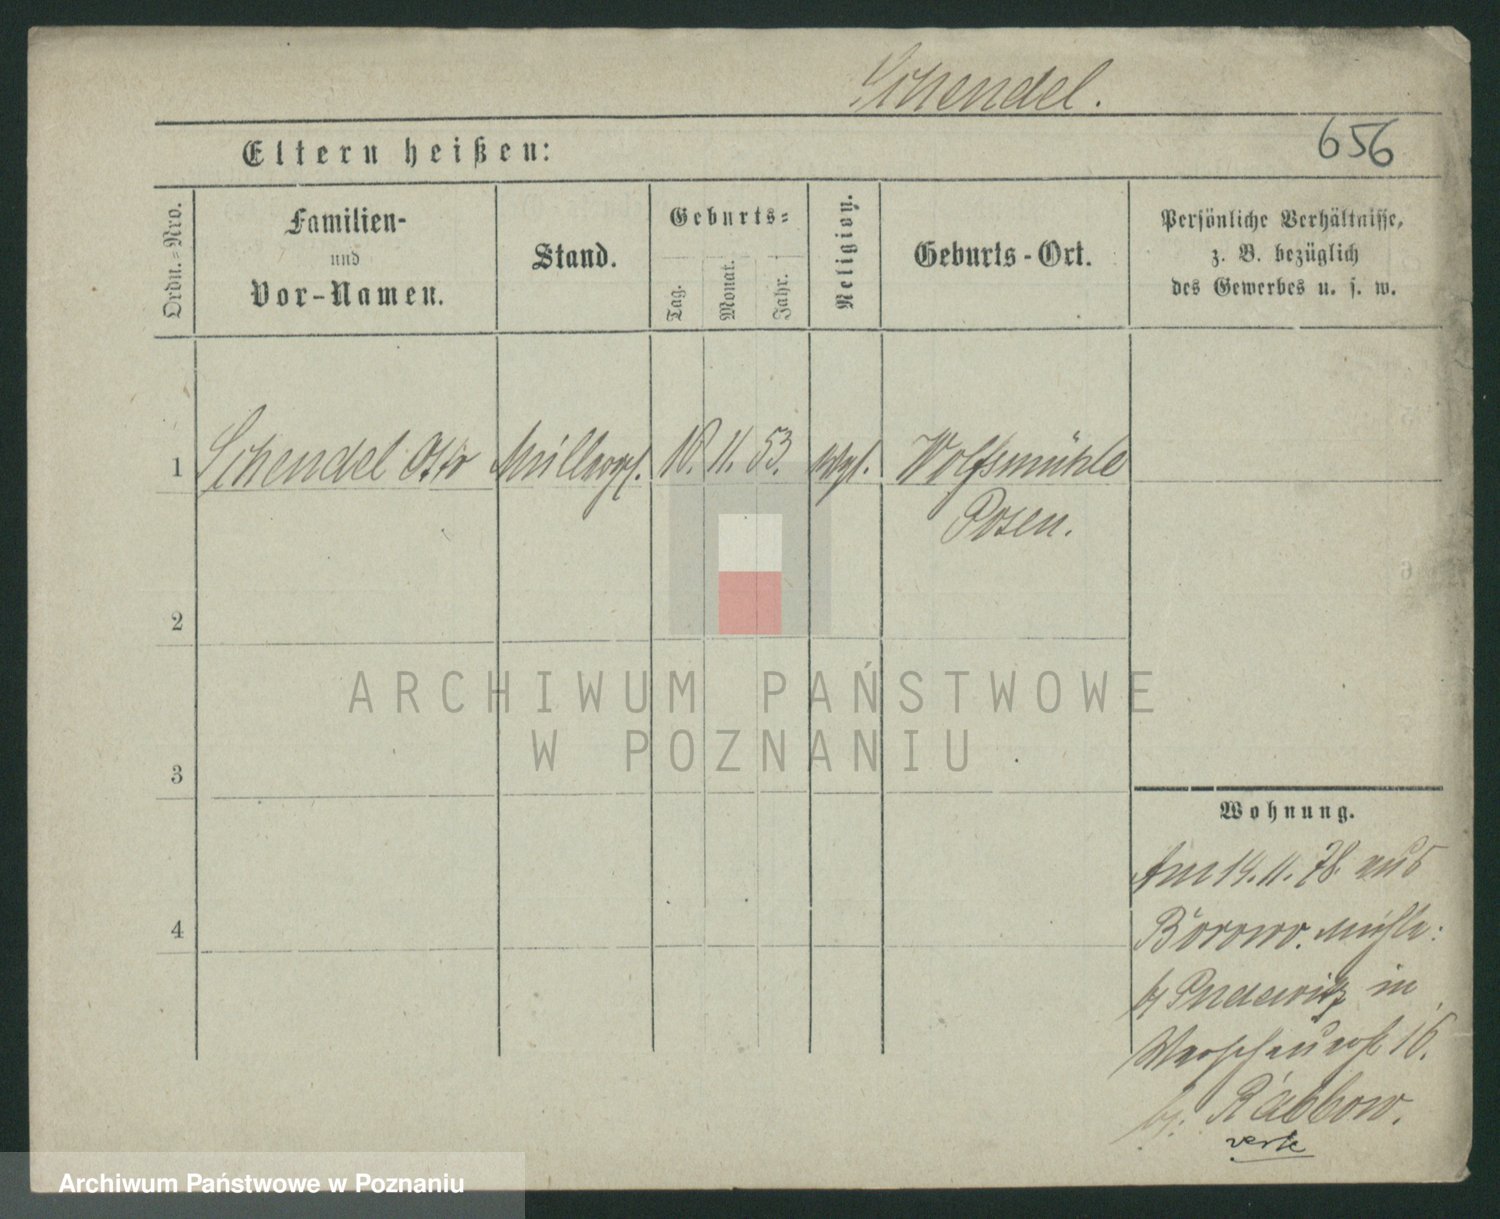 Schendel.
656
Eltern heißen:
Ordn.=Nro.
Familien-
und
Vor-Namen.
Stand.
Geburts=
Tag.
Monat.
Jahr.
Religion.
Geburts-Ort.
Persönliche Verhältnisse,
z. B. bezüglich
des Gewerbes u. s. w.
1 Schendel Otto Müllergs. 18. 11. 53. evgl. Wolfsmühle
Posen.
2
3
4
Wohnung.
Am 14. 11. 78. aus
Borowo. Mühle.
b/ Pudewitz in
16.
by. Rabbow.
verte
ARCHIWUM PAŃSTWOWE
W POZNANIU
Archiwum Państwowe w Poznaniu